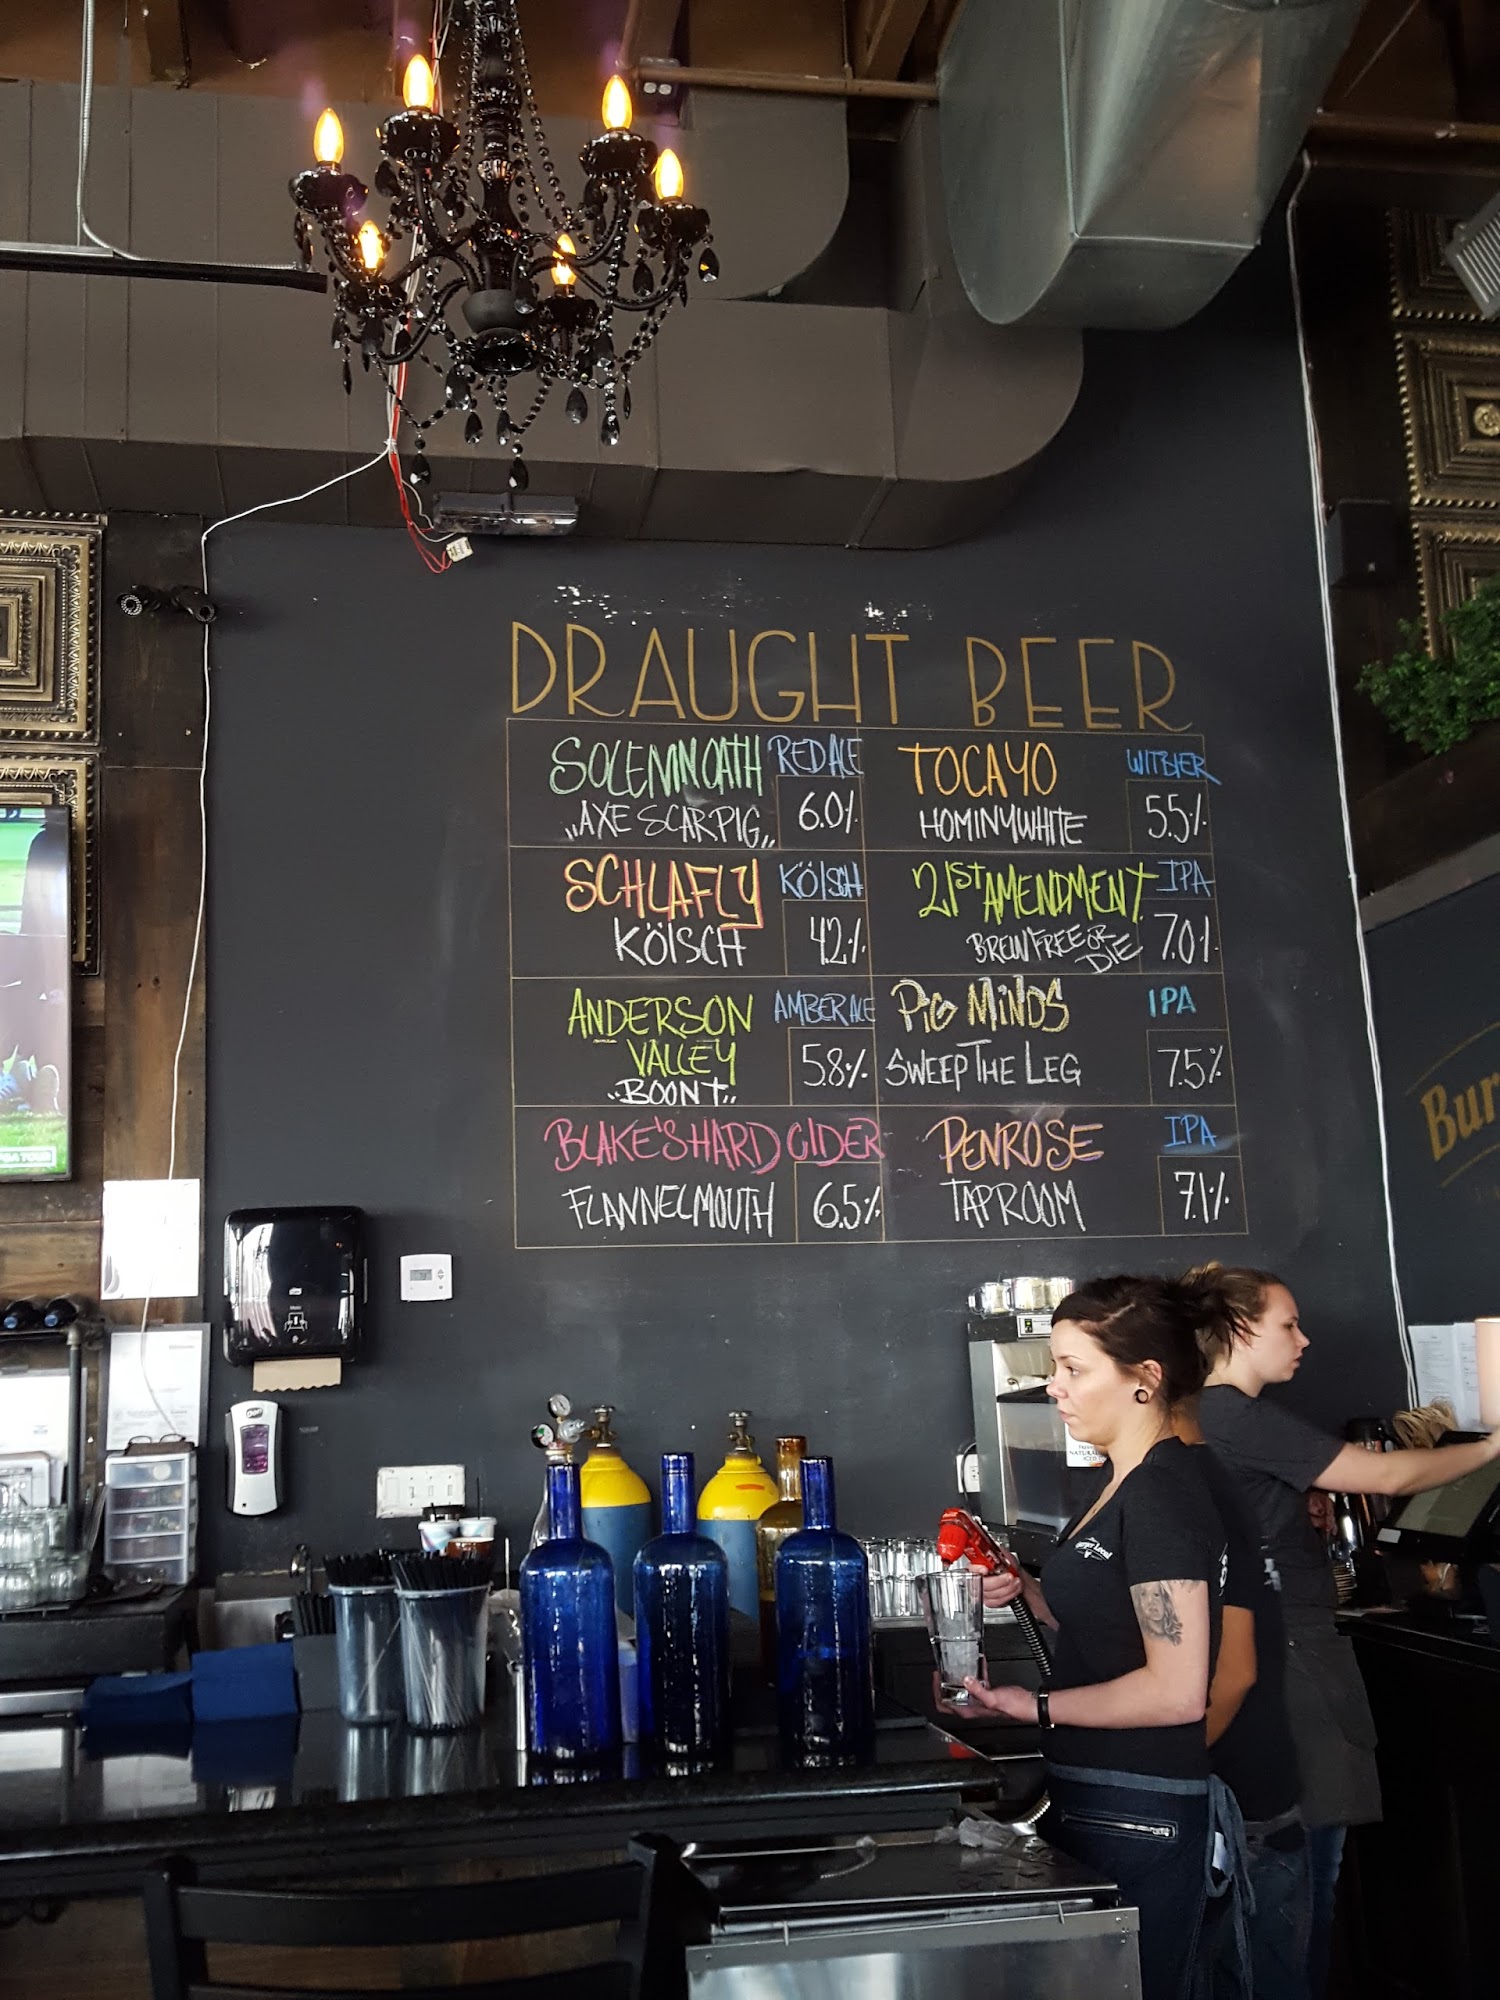 DRAUGHT BEER
SOLEMN OATH RED ALE
„AXE SCAR PIG„ 6.0%
TOCAYO WITBIER
HOMINY WHITE 5.5%
SCHLAFLY KÖLSCH
KÖLSCH 4.2%
21ST AMENDMENT IPA
BREW FREE OR DIE 7.0%
ANDERSON AMBER ALE
VALLEY 5.8%
„BOONT„
PIG MINDS IPA
SWEEP THE LEG 7.5%
BLAKE'S HARD CIDER
FLANNEL MOUTH 6.5%
PENROSE IPA
TAPROOM 7.1%
Bur
Burger Local